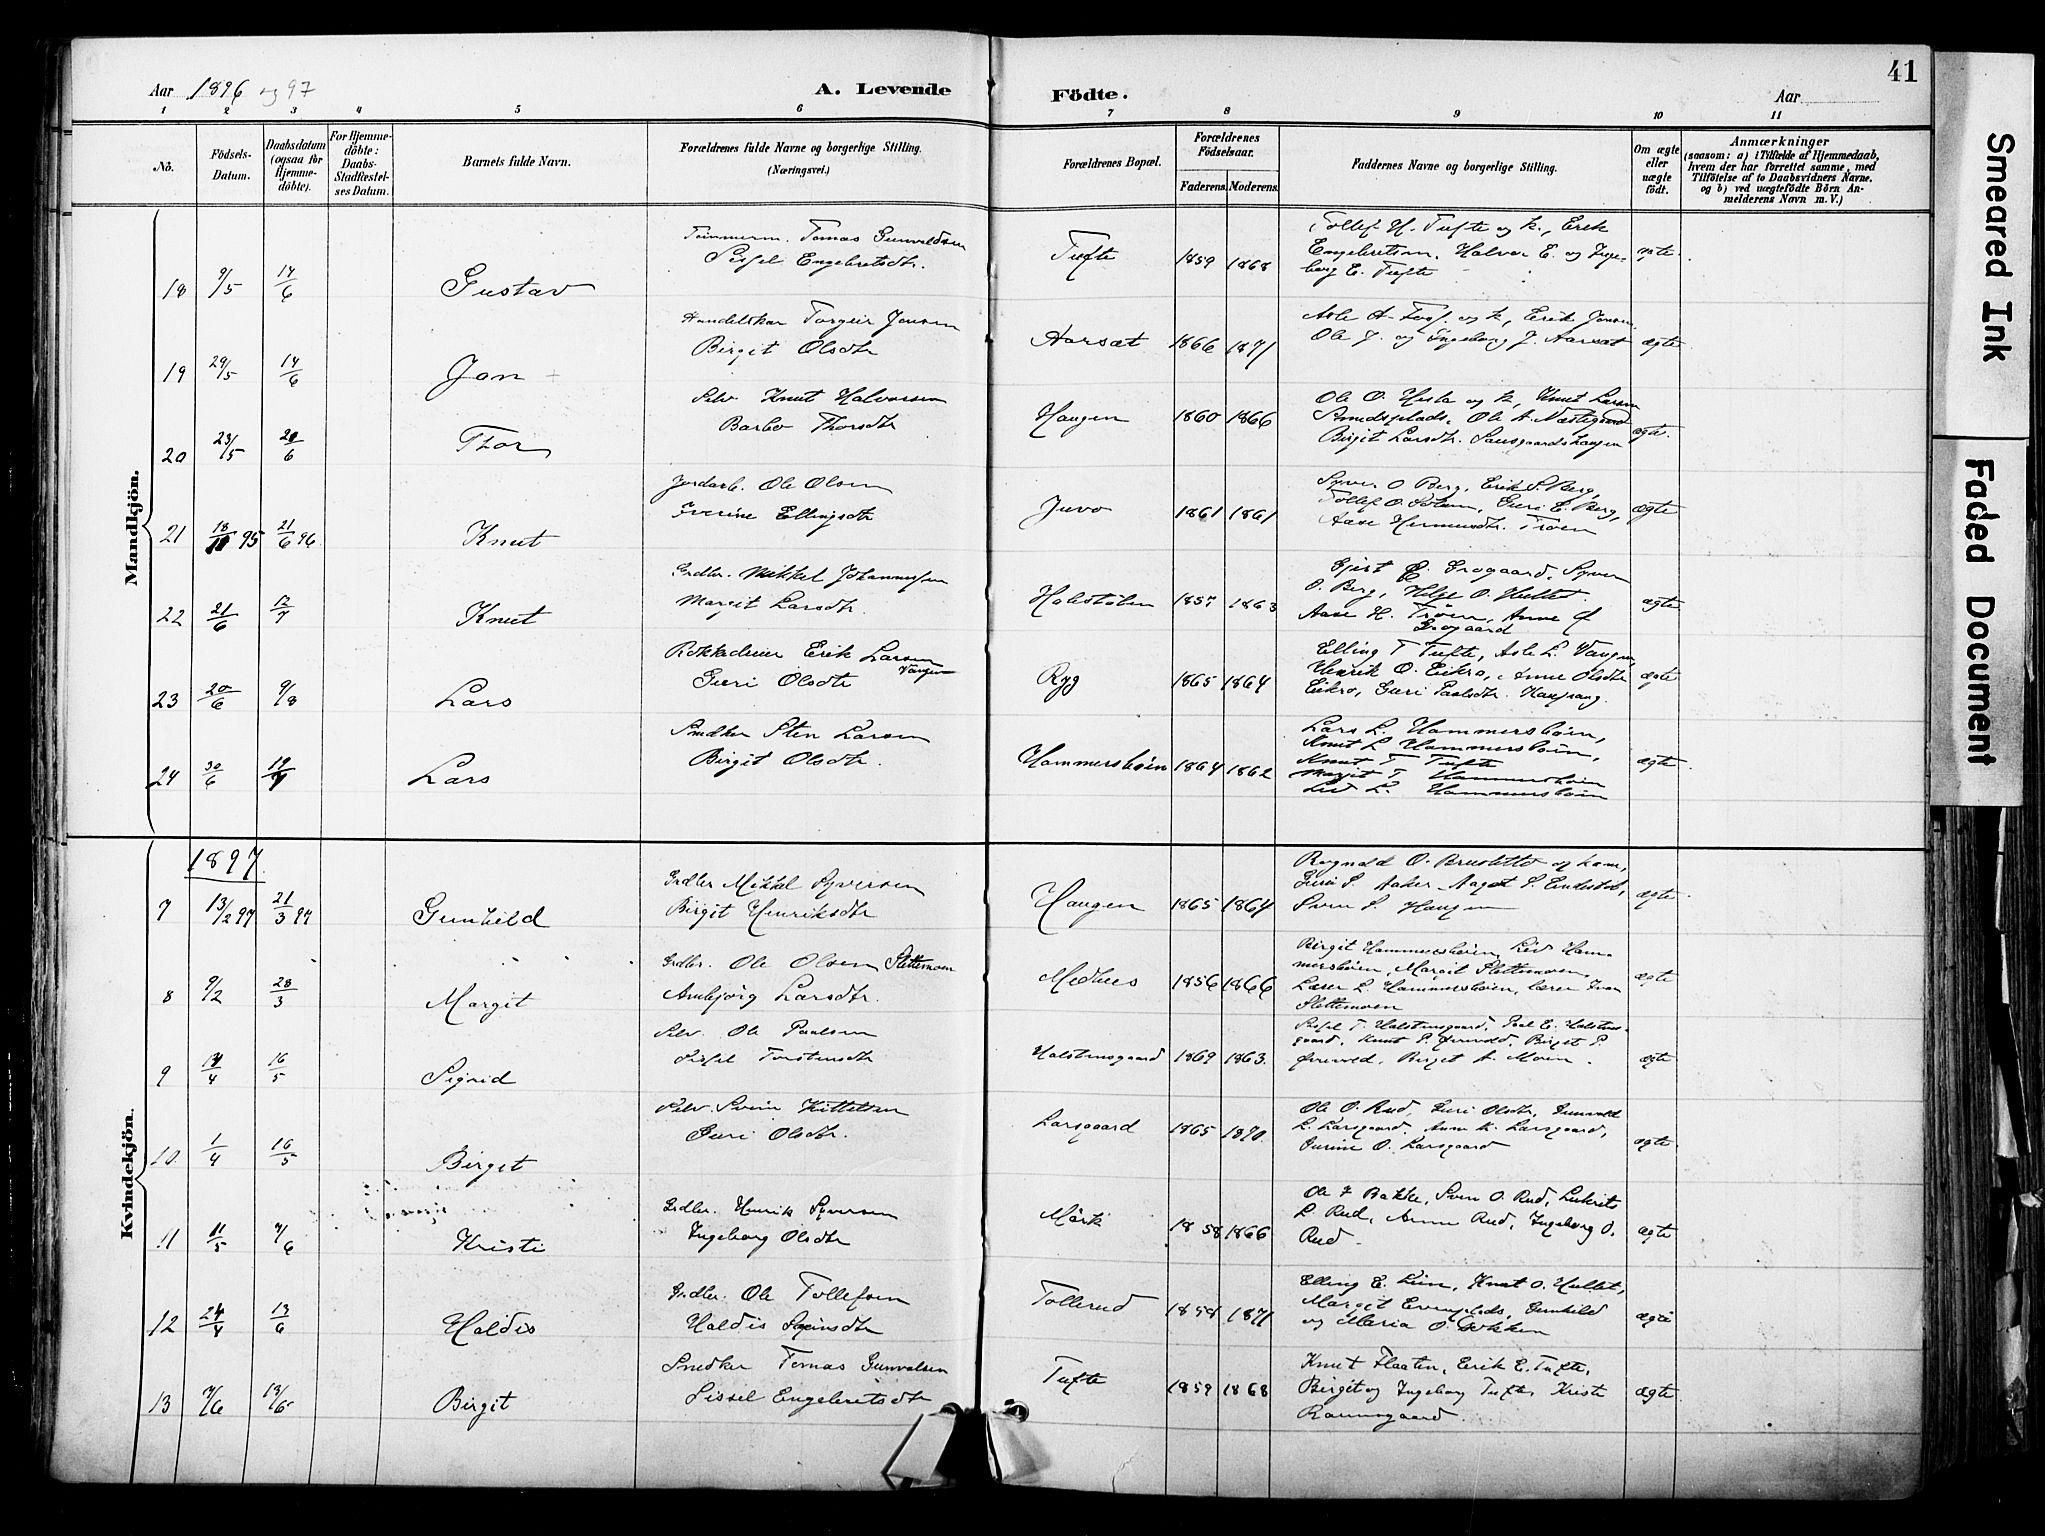 41
Aar 1896 og 97
A. Levende
Födte.
Aar
1 2 3 4 5 6 7 8 9 10 11
Nö.
Födsels-
Datum.
Daabsdatum
(ogsaa för
Hjemme-
döbte).
For Hjemme-
döbte:
Daabs-
Stadfæstel-
ses Datum.
Barnets fulde Navn.
Forældrenes fulde Navne og borgerlige Stilling.
(Næringsvei.)
Forældrenes Bopæl.
Forældrenes
Födselsaar.
Faderens. Moderens.
Faddernes Navne og borgerlige Stilling.
Om ægte
eller
uægte
födt.
Anmærkninger
(saasom: a) i Tilfælde af Hjemmedaab,
hvem der har forrettet samme, med
Tilföielse af to Daabsvidners Navne.
og b) ved uægtefödte Börn An-
melderens Navn m. V.)
Mandkjön.
18 9/5 14/6 Gustav
Tömmerm. Tomas Gunvaldsen
Sissel Engebretsdtr.
Tufte 1859 1868
Tollef H. Tufte og k., Erik
Engebretsen, Halvor E. og Inge-
borg E. Tufte
ægte.
19 29/5 14/6 Jon
Handelskar Torgeir Jonsen
Birgit Olsdtr
Aarsæt 1866 1871
Asle A. og k, Erik Jonsen
Ole J. og Ingeborg J. Aarsæt
ægte
20 23/5 21/6 Thor
Selv. Knut Halvorsen
Barbo Thorsdtr
Haugen 1860 1866
Ole O. Hesla og k, Knut Larsen
Ole A. Næstegaard
Birgit Larsdtr.
ægte.
21 18/11 95 21/6 96. Knut
Jordarb. Ole Olsen
Iverine Ellingsdtr
Juvo 1861 1861
Syver O Berg, Erik S. Berg,
Tollef O. Guri E. Berg,
Aase Hermundsdtr. Tröen
ægte
22 21/6 12/7 Knut
Grdbr. Mikkel Johannessen
Margit Larsdtr.
Halstölen 1857 1863
Gjert E. Grogaard, Syver
O. Berg, Helge O. Hullet.
Aase H. Tröen, Anne
Grogaard
ægte
23 20/6 9/8 Lars
Rokkedreier Erik Larsen
Vangen
Guri Olsdtr
Ryg 1865 1864
Elling T Tufte, Asle L. Vangen,
Henrik O. Eikro, Anne Olsdtr
Eikro, Guri Paalsdtr.
ægte
24 30/6 19/7 Lars
Snedker Sten Larsen
Birgit Olsdtr.
Hammersböen 1864 1862
Lars L. Hammersböen,
Knut L Hammersböen,
Knut T Tufte
Margit T. Hammersböen
Liv L. Hammersböen
ægte
Kvindekjön.
1897
7 13/2 97 21/3 97 Gunhild
Grdbr Mikkel Syversen
Birgit Henriksdtr
Haugen 1865 1864
Ragnvald O. Brusletto og kone,
Guri S. Aaker Aagot S.
Sven S. Haugen
ægte
8 9/2 28/3 Margit
Grdbr. Ole Olsen Slettemoen
Ambjörg Larsdtr.
Medhus 1856 1866
Birgit Hammersböen, Liv Ham-
mersböen, Margit Slettemoen
Lars L. Hammersböen, lærer
Slettemoen
ægte
9 14/4 16/5 Sigrid
Selv. Ole Paalsen
Sissel Torstensdtr
Halstensgaard 1869 1863.
Sissel T. Halstensgaard, Paal E. Halstens-
gaard, Knut P. Birgit P.
Birgit A. Moen.
ægte
10. 1/4 16/5 Birgit
Selv. Svein Kittelsen
Guri Olsdtr.
Larsgaard 1865 1870.
Ole O. Rud, Guri Olsdtr, Gunvald
L. Larsgaard, Anne K. Larsgaard,
O. Larsgaard
ægte
11 11/5 7/6 Kristi
Grdbr. Henrik Syversen
Ingeborg Olsdtr
Mörk 1858 1866
Ole J Bakke, Sven O. Rud,
L. Rud, Anne Rud, Ingeborg O.
Rud
ægte
12 24/4 13/6 Haldis
Grdbr. Ole Tollefsen
Haldis Sveinsdtr
Tollerud 1858 1871
Elling E. Lien, Knut O. Hullet,
Margit Gunhild
og Maria O. Lökken
ægte
13 7/6 13/6 Birgit
Snedker Tomas Gunvalsen
Sissel Engebretsdtr
Tufte 1859 1868
Knut Flaaten, Erik E. Tufte,
Birgit og Ingeborg Tufte, Kristi
ægte
Smeared Ink
Faded Document